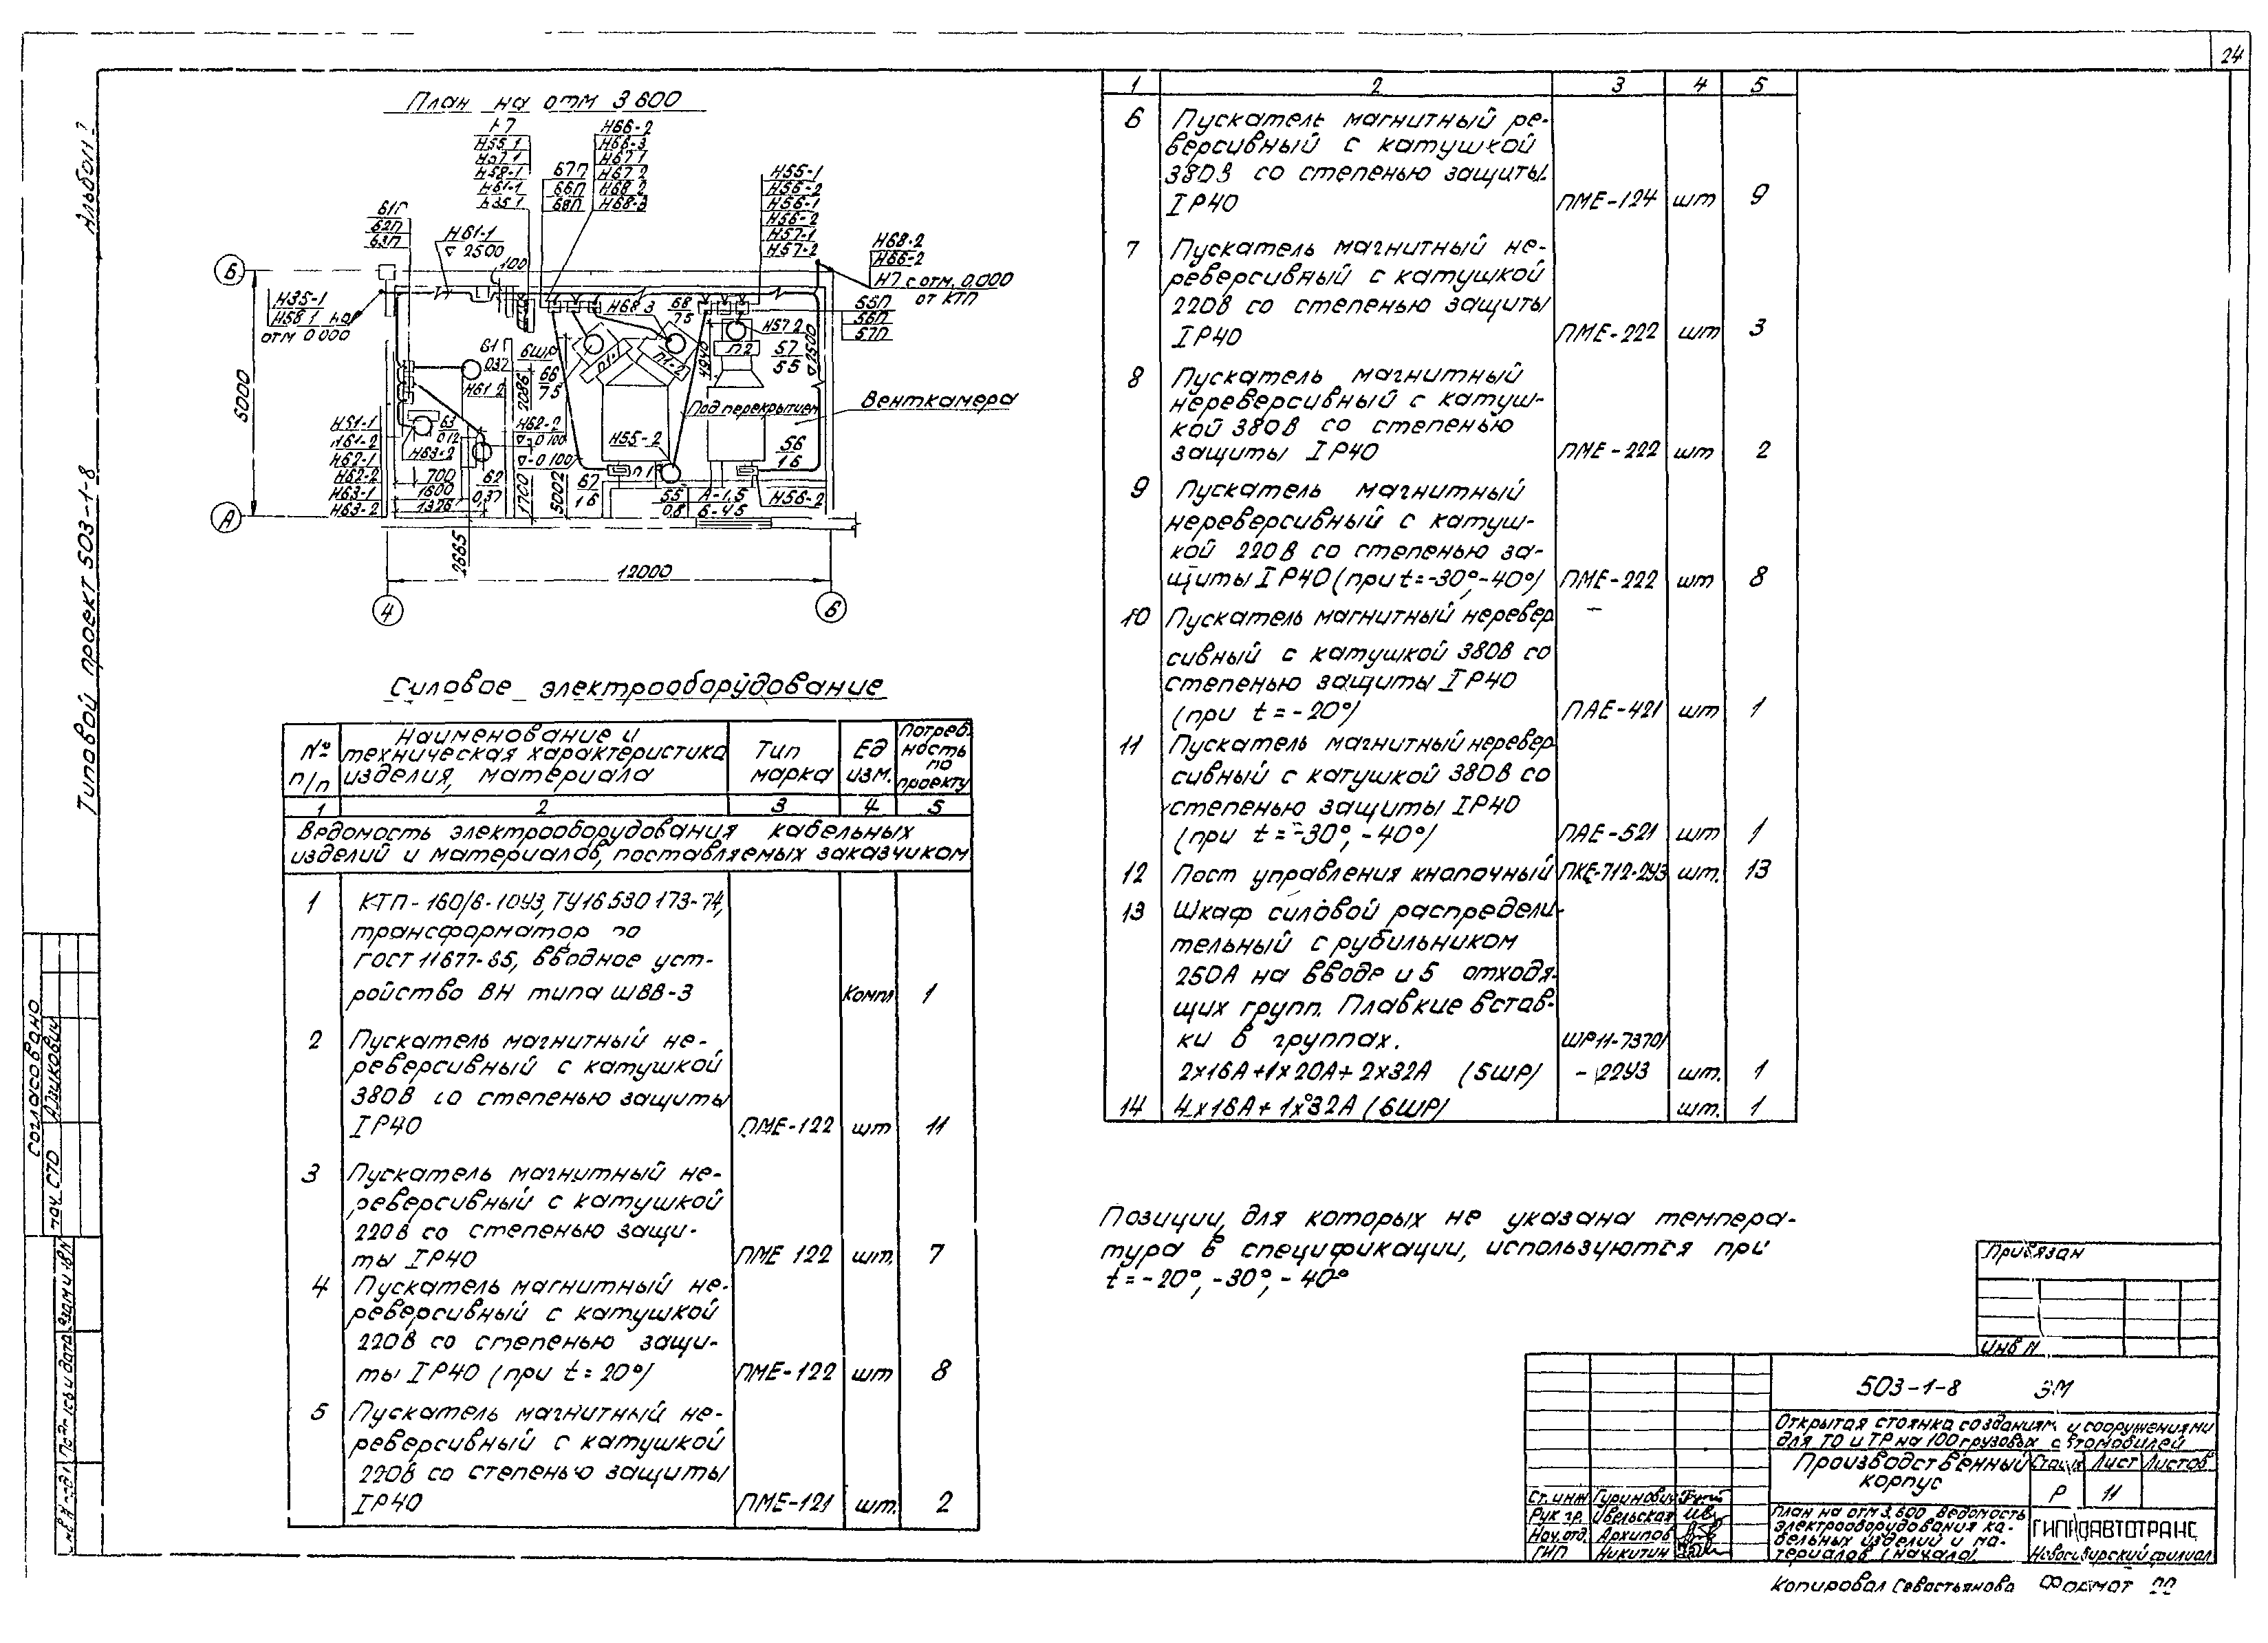 24
Альбом
Типовой проект 503-1-8
План на отм 3 600
Н55 1
Н58-1
Н61-1
67П
66П
68П
Н66-2
Н66-3
Н67 1
Н67 2
Н68 2
Н68-3
Н55-1
Н55-2
Н56-1
Н56-2
Н57-1
Н57-2
62П
63П
Н61-1
2500
100
Н68-2
Н66-2
Н7 с отм. 0,000
от КТП
Б
Н35-1
Н58 1 на
отм 0 000
Н68 3
68
75
Н57 2
55П
56П
57П
6ШР
66
75
П1-1
П1-2
П2
57
55
2500
4940
037
Н61 2
2086
6000
Под перекрытием
Венткамера
Н61-1
Н61-2
Н62-1
Н62-2
Н63-1
Н63-2
63
012
Н63-2
Н62-2
-0 100
-0 100
Н55-2
56
16
700
1600
1326
62
0,37
1700
5002
67
16
55
0,8
А-1,5
Б-45
Н56-2
А
2665
12000
4
6
Силовое электрооборудование
№ п/п
Наименование и техническая характеристика изделия, материала
Тип марка
Ед изм.
Потребность по проекту
1 2 3 4 5
Ведомость электрооборудования кабельных
изделий и материалов, поставляемых заказчиком
1 КТП-160/6-10У3, ТУ16 530 173-74,
трансформатор по
ГОСТ 11677-65, вводное уст-
ройство ВН типа ШВВ-3 Компл 1
2 Пускатель магнитный не-
реверсивный с катушкой
380В со степенью защиты
IP40 ПМЕ-122 шт 11
3 Пускатель магнитный не-
реверсивный с катушкой
220В со степенью защи-
ты IP40 ПМЕ 122 шт. 7
4 Пускатель магнитный не-
реверсивный с катушкой
220В со степенью защи-
ты IP40 (при t = 20°) ПМЕ-122 шт 8
5 Пускатель магнитный не-
реверсивный с катушкой
220В со степенью защиты
IP40 ПМЕ-121 шт. 2
1 2 3 4 5
6 Пускатель магнитный ре-
версивный с катушкой
380В со степенью защиты
IP40 ПМЕ-124 шт 9
7 Пускатель магнитный не-
реверсивный с катушкой
220В со степенью защиты
IP40 ПМЕ-222 шт 3
8 Пускатель магнитный
нереверсивный с катуш-
кой 380В со степенью
защиты IP40 ПМЕ-222 шт 2
9 Пускатель магнитный
нереверсивный с катуш-
кой 220В со степенью за-
щиты IP40 (при t=-30°,-40°) ПМЕ-222 шт 8
10 Пускатель магнитный неревер
сивный с катушкой 380В со
степенью защиты IP40
(при t = -20°) ПАЕ-421 шт 1
11 Пускатель магнитный неревер
сивный с катушкой 380В со
степенью защиты IP40
(при t = -30°, -40°) ПАЕ-521 шт 1
12 Пост управления кнопочный ПКЕ-712-2У3 шт. 13
13 Шкаф силовой распредели-
тельный с рубильником
250А на вводе и 5 отходя-
щих групп. Плавкие встав-
ки в группах. ШР11-7370/
2х16А+1х20А+2х32А (5ШР) -22У3 шт. 1
14 4х16А+1х32А (6ШР) шт. 1
Позиции, для которых не указана темпера-
тура в спецификации, используются при
t = -20°, -30°, -40°
Согласовано
Нач СТО Азикович
Привязан
Инв N
503-1-8 ЭМ
Открытая стоянка со зданиями и сооружениями
для ТО и ТР на 100 грузовых автомобилей
Производственный
корпус
Стадия Лист Листов
Р 11
Ст. инж Гуринович
Рук гр. Ивельская
Нач. отд. Архипов
ГИП Никитин
План на отм 3.600 Ведомость
электрооборудования ка-
бельных изделий и ма-
териалов (начало).
ГИПРОАВТОТРАНС
Новосибирский филиал
Копировал Севастьянова Формат 22